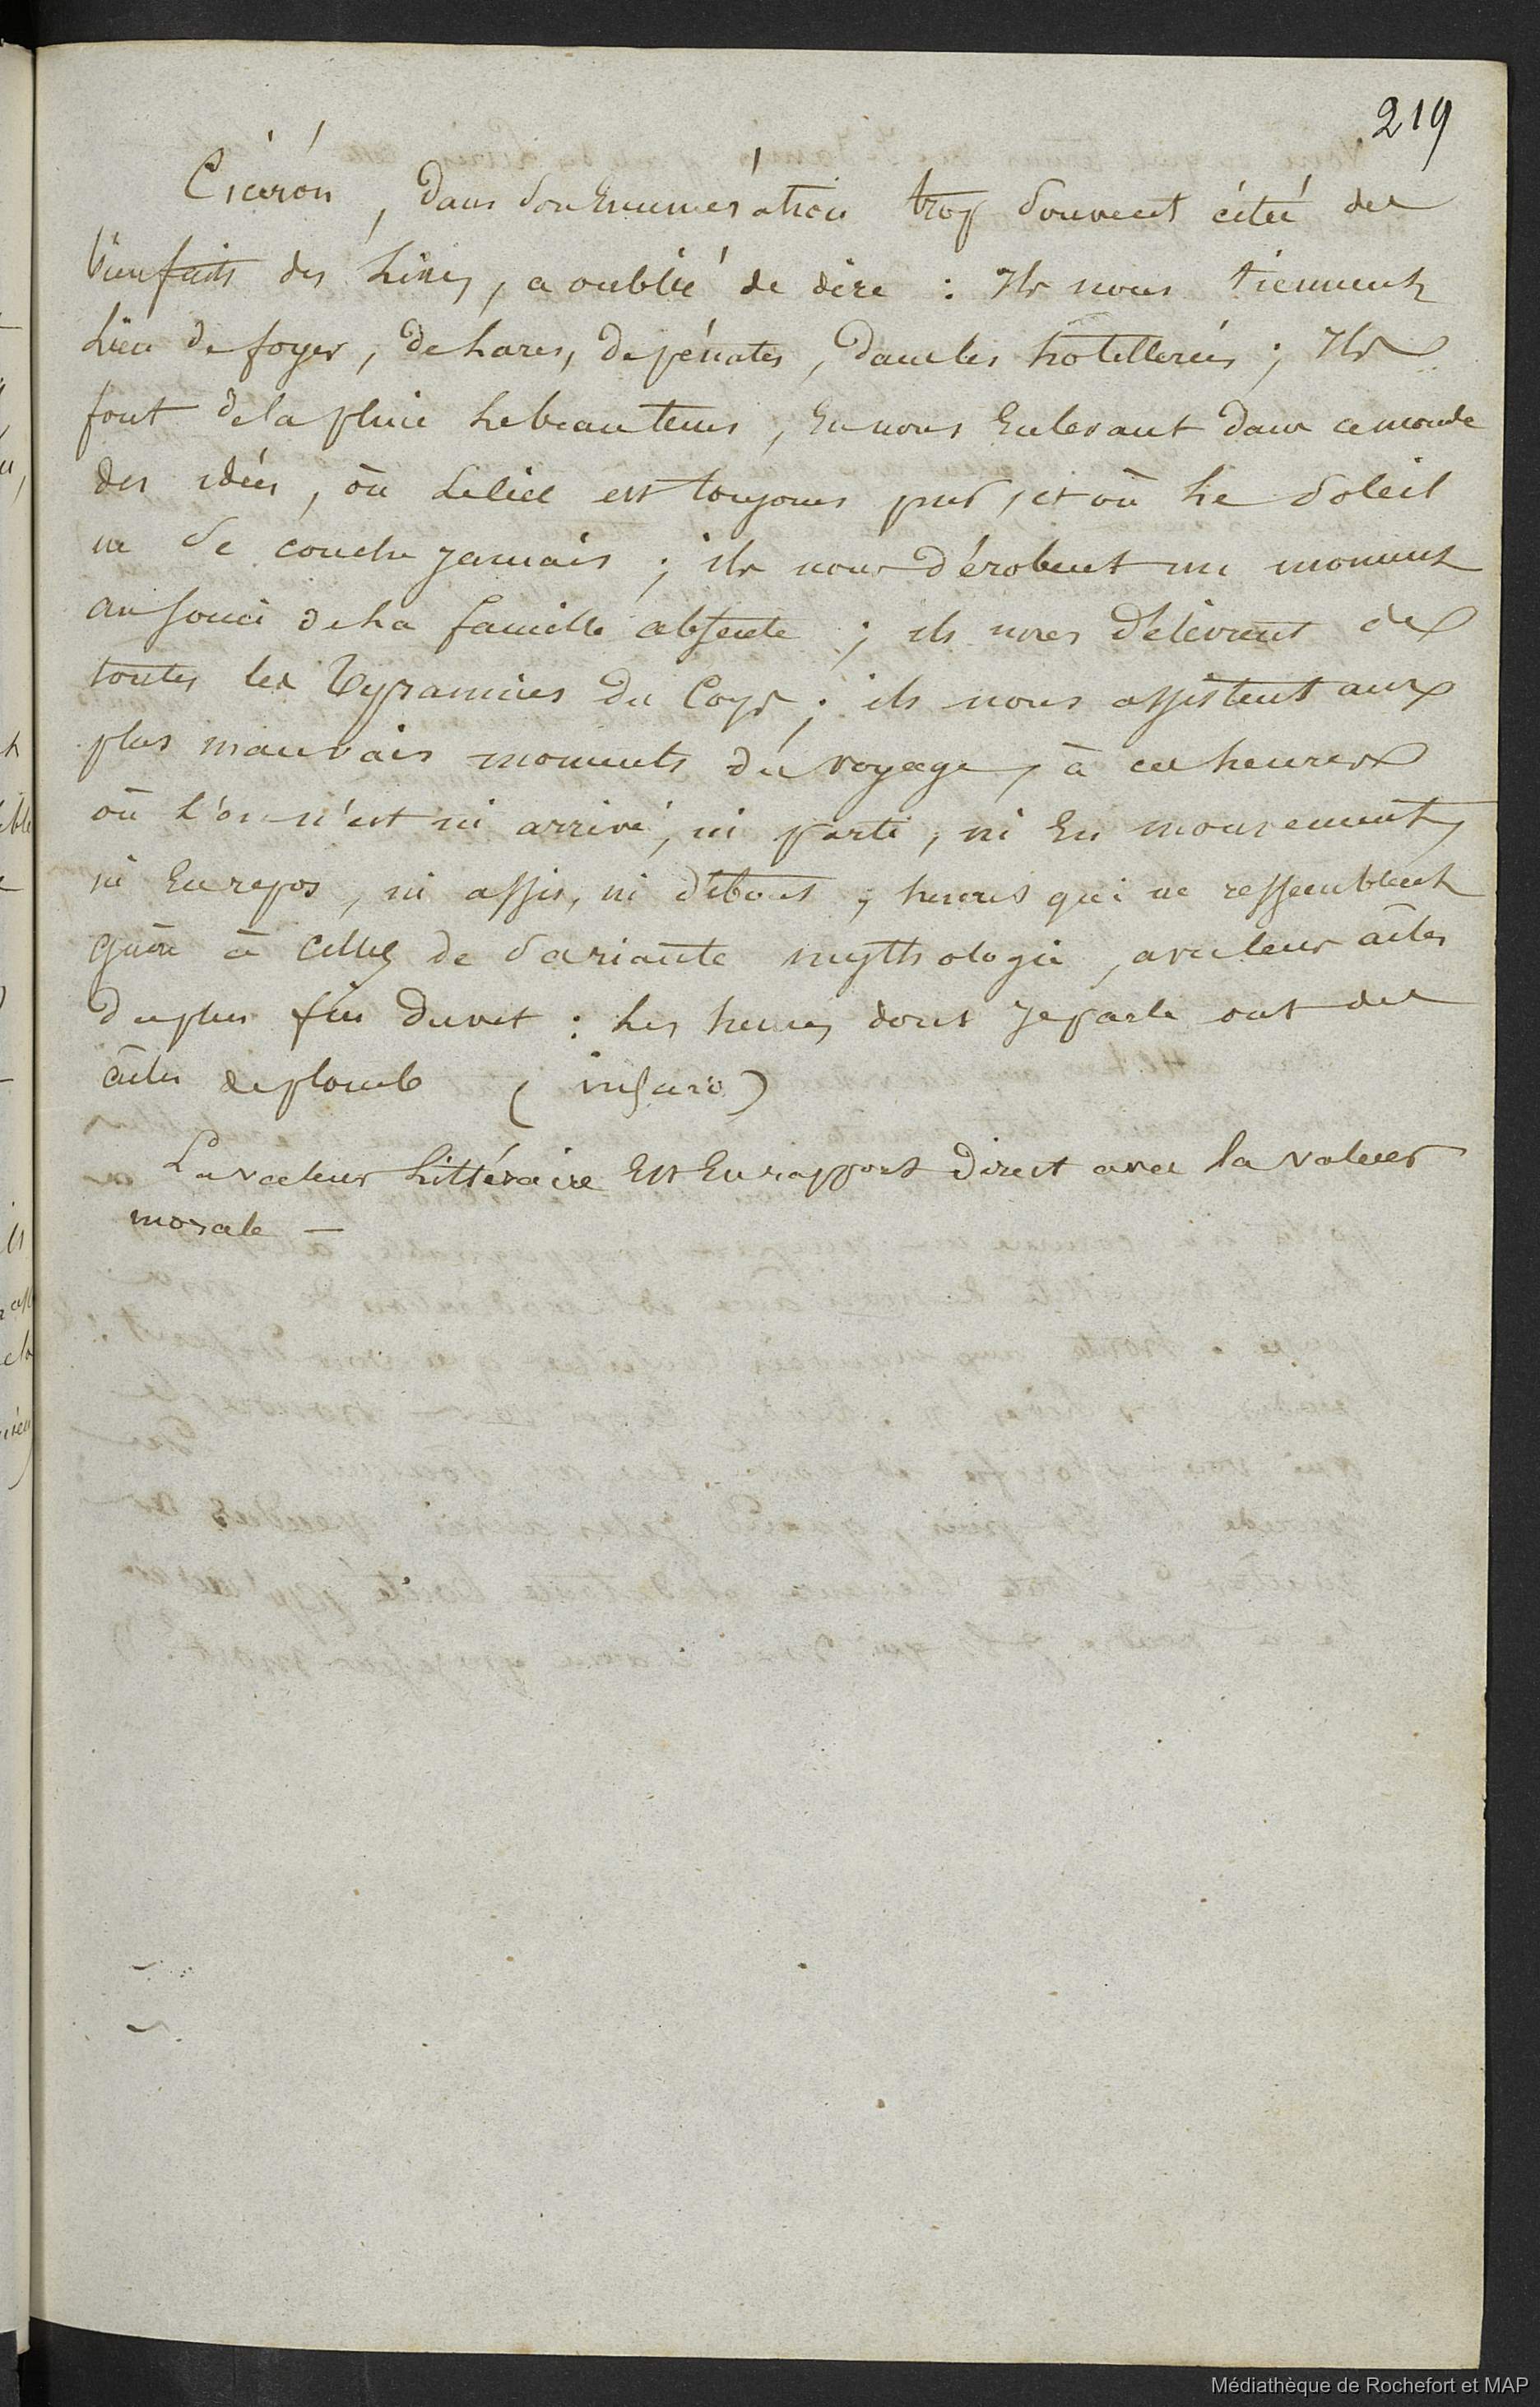 219
Cicéron, dans son Enumération trop souvent citée des
bienfaits des Livres, a oublié de dire : Ils nous tiennent
Lieu de foyer, de Lares, de pénates, dans les hotelleries ; Ils
font de la pluie le beau tems, En nous Enlevant dans ce monde
des idées, où le ciel est toujours pur, et où le Soleil
ne se couche jamais ; ils nous dérobent un moment
au souci de la famille absente ; ils nous délivrent de
toutes les tyrannies du Corps ; ils nous assistent aux
plus mauvais moments du voyage, à ces heures
où l'on n'est ni arrivé, ni parti, ni En mouvement,
ni En repos, ni assis, ni debout ; heures qui ne ressemblent
guère à celles de la riante mythologie, avec leurs aîles
du plus fin duvet : Les heures dont je parle ont des
aîles de plomb
La valeur Littéraire Est En rapport direct avec la valeur
morale —
Médiathèque de Rochefort et MAP